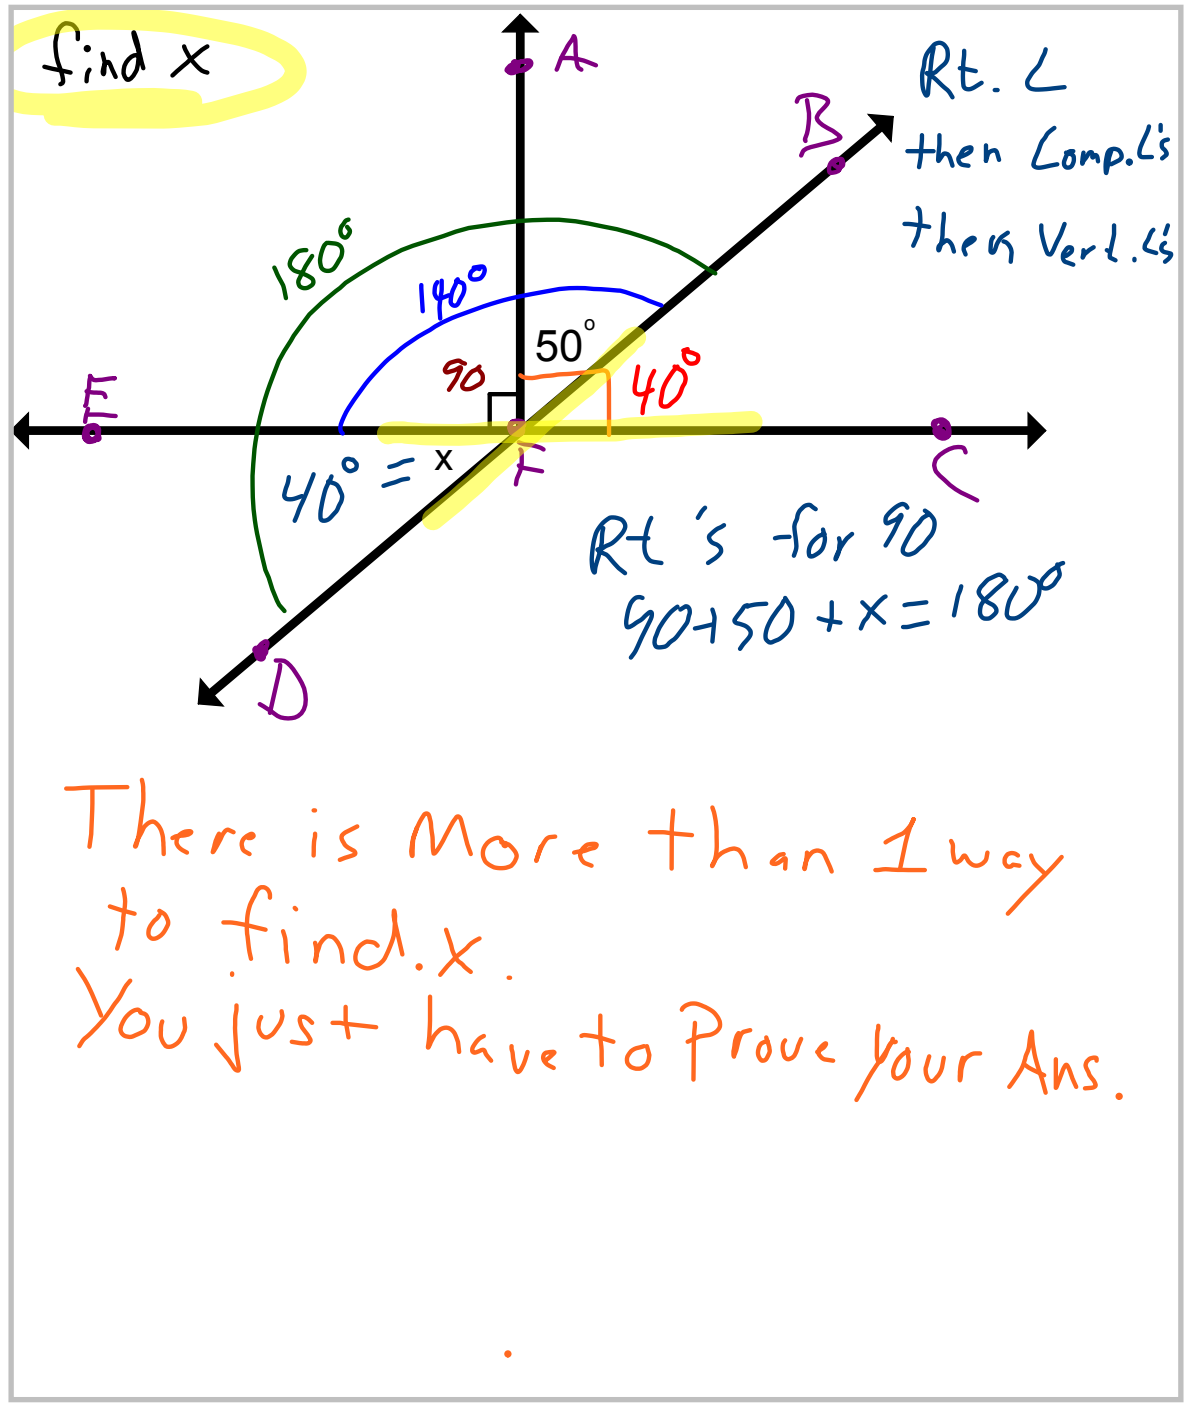 find x
A
B
Rt. ∠
then Comp. ∠'s
then Vert. ∠'s
180°
140°
50°
90
40°
E
C
x
F
40° =
Rt 's for 90
90+50 + x = 180°
D
There is More than 1 way
to find. x.
You just have to Prove your Ans.